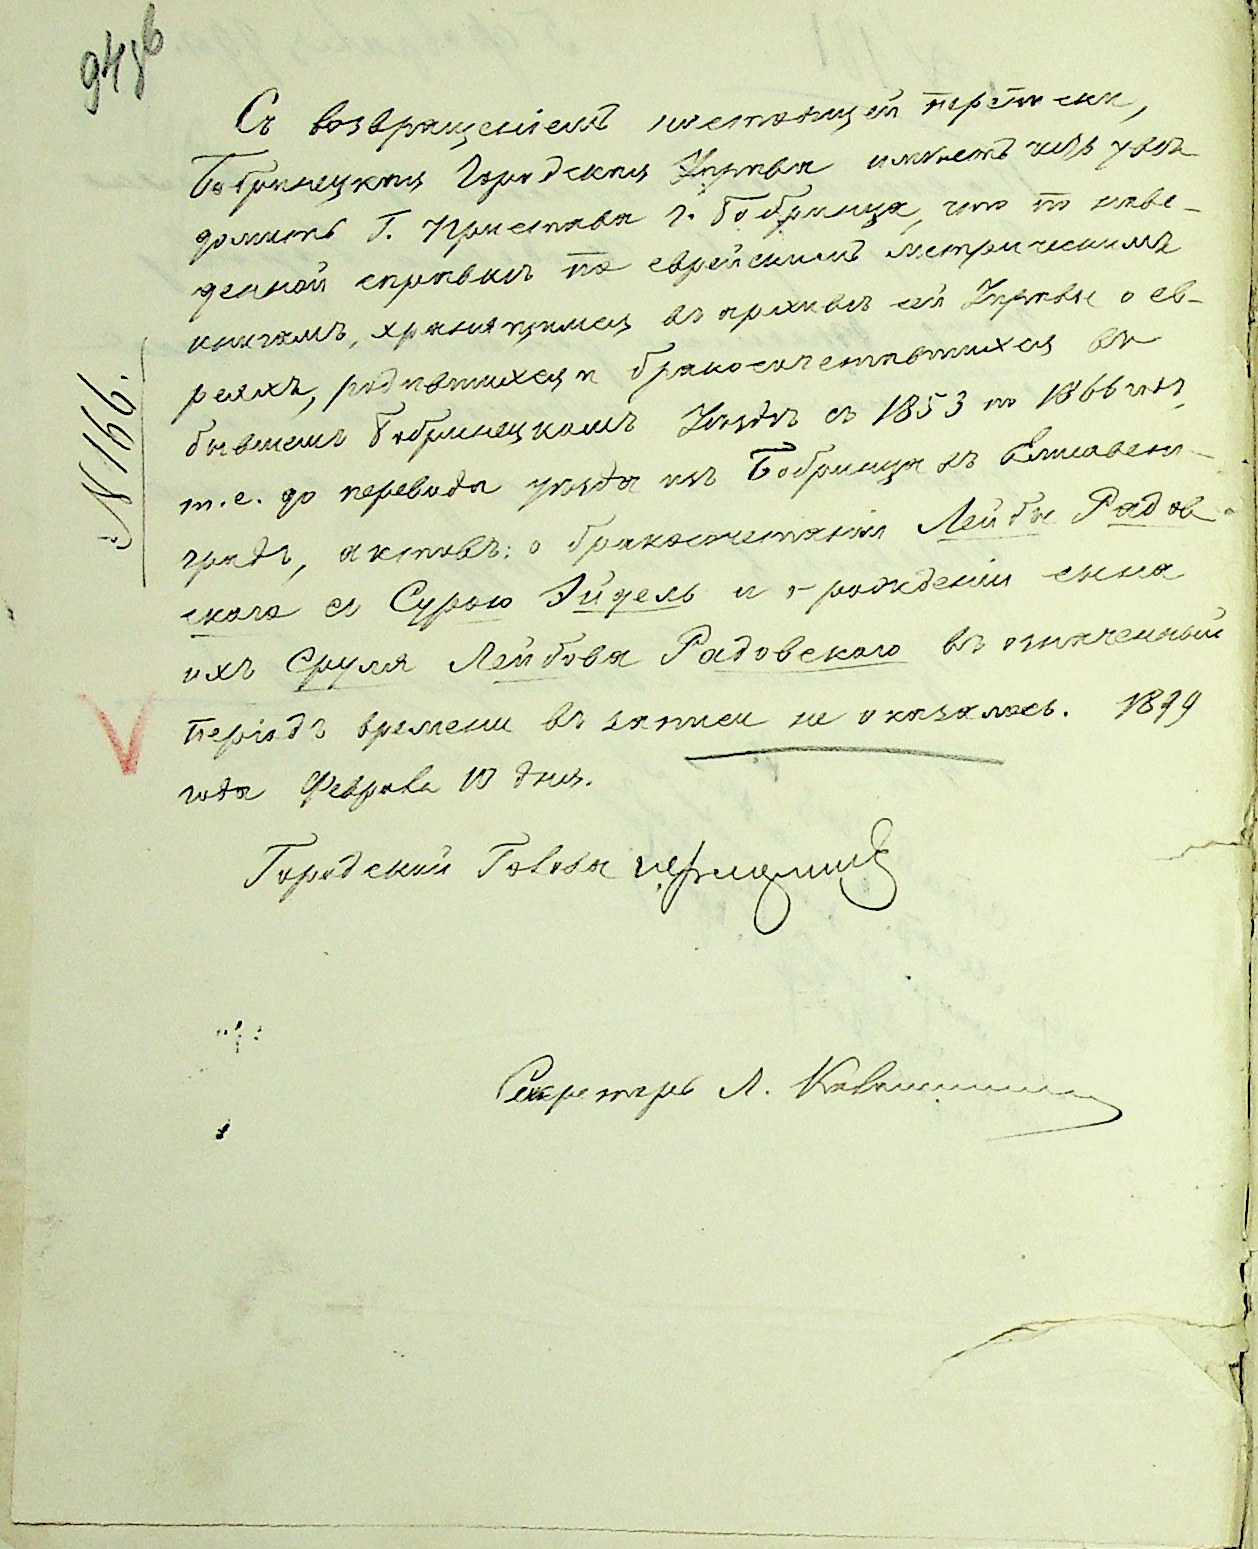 Съ возвращеніемъ настоящей переписки,
Бобринецкая Городская Управа имѣетъ честь увѣ-
домить Г. Пристава г. Бобринца, что по наве-
денной справкѣ по еврейскимъ метрическимъ
книгамъ, хранящимся въ архивѣ сей Управы о ев-
реяхъ, родившихся и бракосочетавшихся въ
бывшемъ Бобринецкомъ Уѣздѣ съ 1853 по 1866 годъ,
т.е. до перевода уѣзда изъ Бобринца въ Елисавет-
градъ, актовъ: о бракосочетаніи Лейбы Радов-
скаго съ Сурою Эйдель и о рожденіи сына
ихъ Сруля Лейбова Радовскаго въ означенный
періодъ времени въ записи не оказалось. 1879
года Февраля 10 дня.
№ 166.
Городской Голова
Секретарь Л.